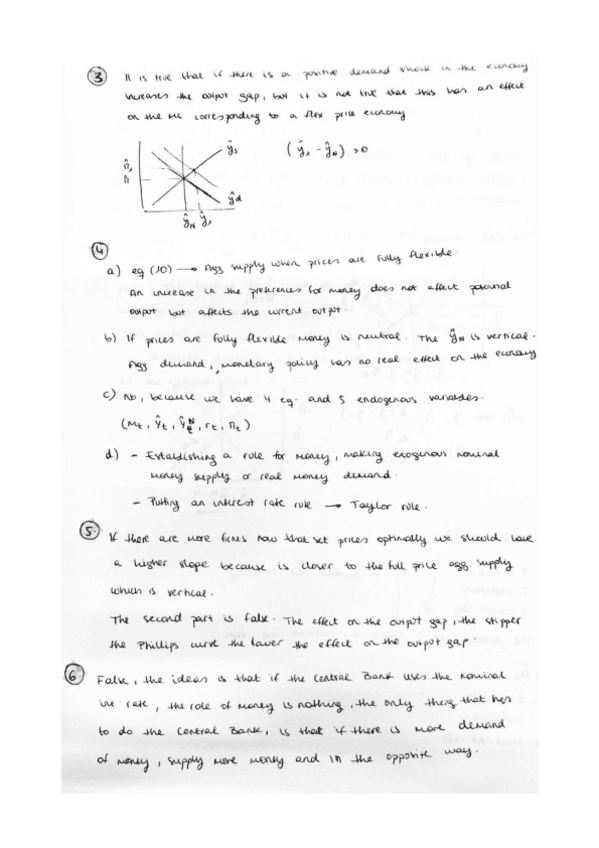 3 It is true that if there is a positive demand shock in the economy
increases the output gap, but it is not true that this has an effect
on the MC corresponding to a flex price economy.
ŷs
(ŷ₁ - ŷN) > 0
π̂₁
π̂
ŷd
ŷN ŷ₁
4
a) eq (10) → Agg supply when prices are fully flexible.
An increase in the preferences for money does not affect potential
output but affects the current output.
b) If prices are fully flexible money is neutral. The ŷN is vertical.
Agg demand, monetary policy has no real effect on the economy
c) No, because we have 4 eq. and 5 endogenous variables.
(mt, ŷt, ŷtN, rt, πt)
d) - Establishing a rule for money, making exogenous nominal
money supply or real money demand.
- Putting an interest rate rule → Taylor rule.
5. If there are more firms now that set prices optimally we should have
a higher slope because is closer to the full price agg supply
which is vertical.
The second part is false. The effect on the output gap, the stipper
the Phillips curve the lower the effect on the output gap.
6. False, the ideas is that if the Central Bank uses the nominal
int rate, the role of money is nothing, the only thing that has
to do the Central Bank, is that if there is more demand
of money, supply more money and in the opposite way.